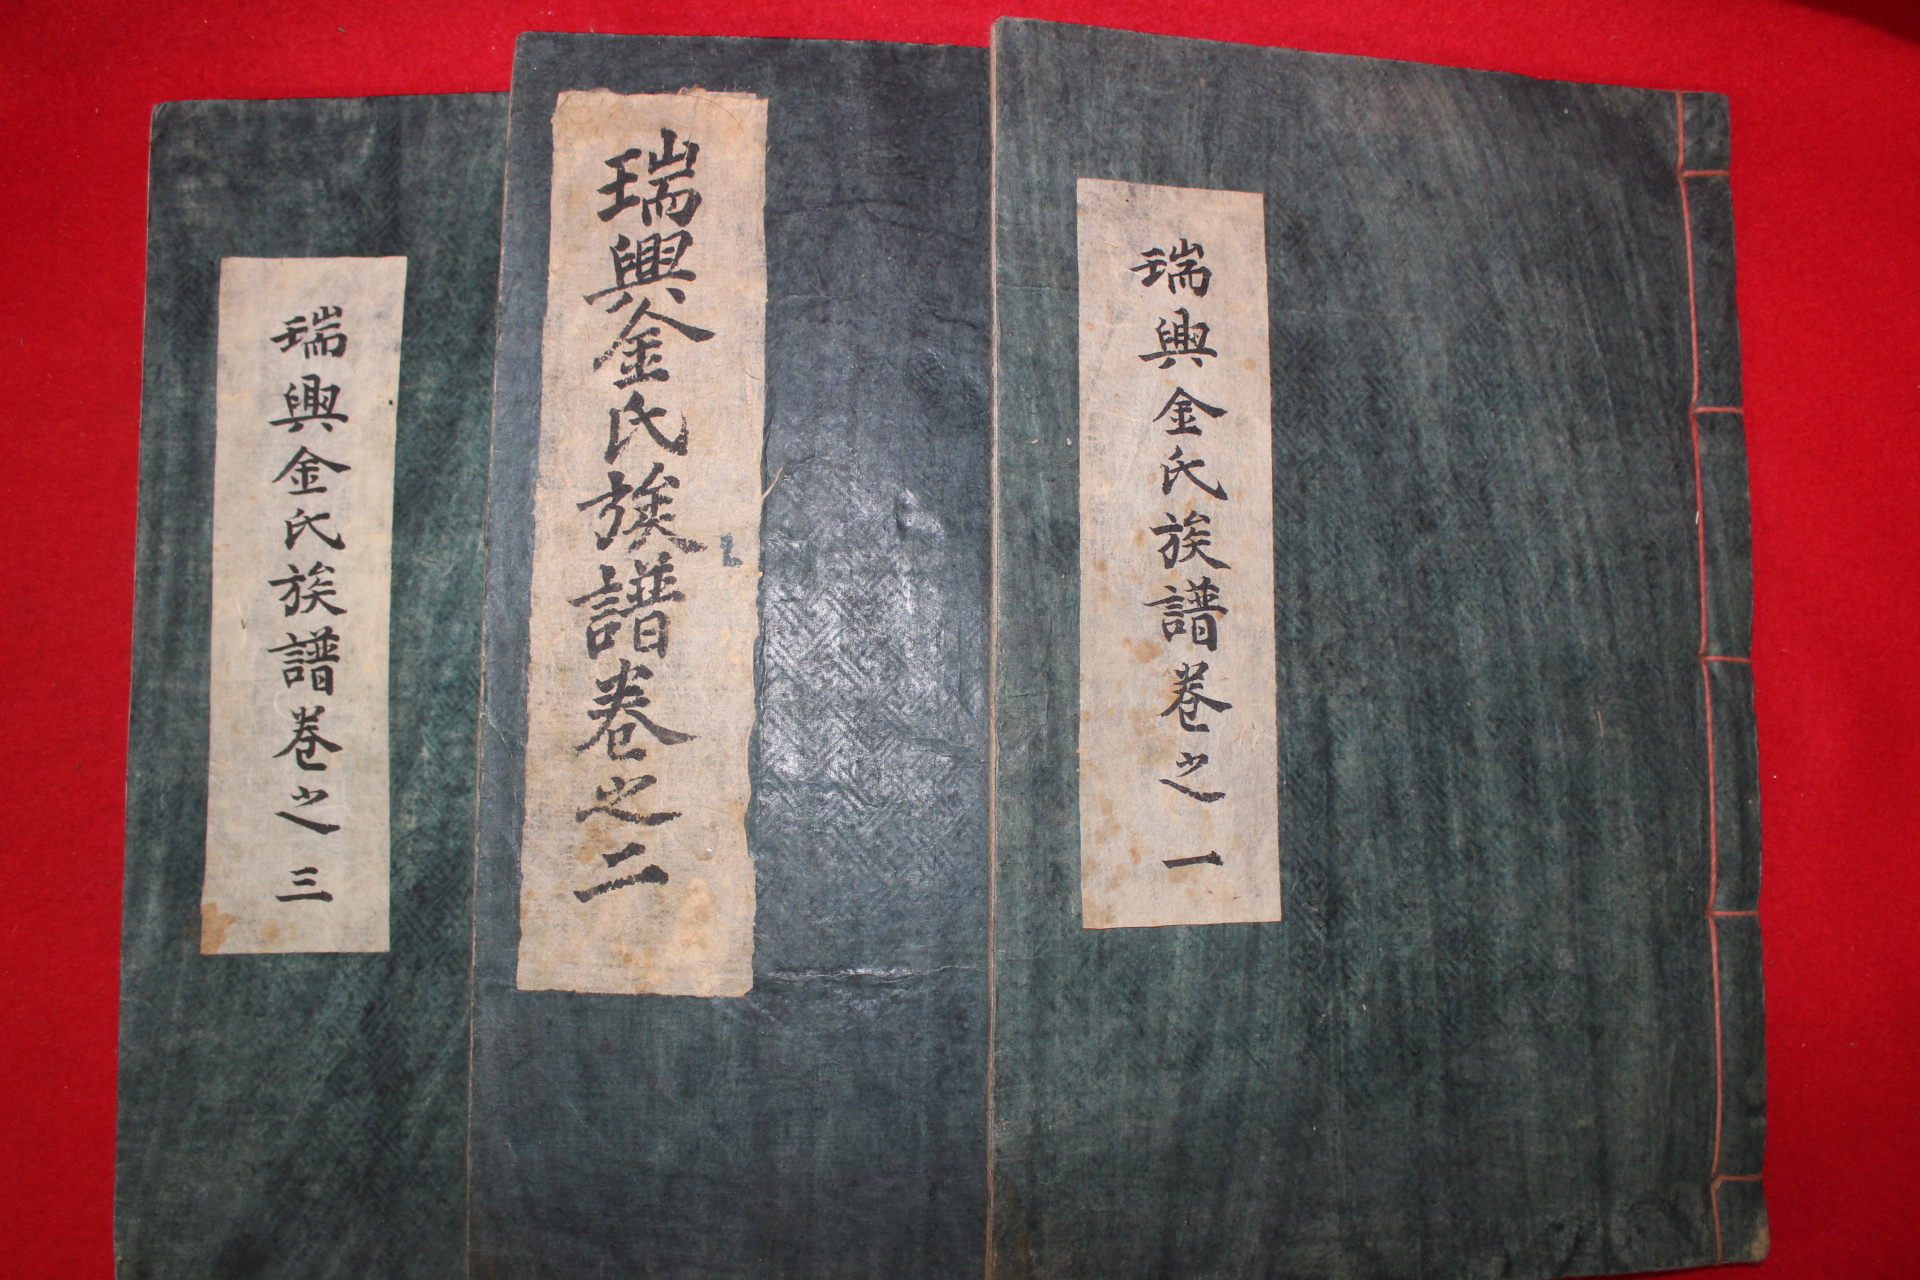 瑞興金氏族譜卷之一
瑞興金氏族譜卷之二
瑞興金氏族譜卷之三